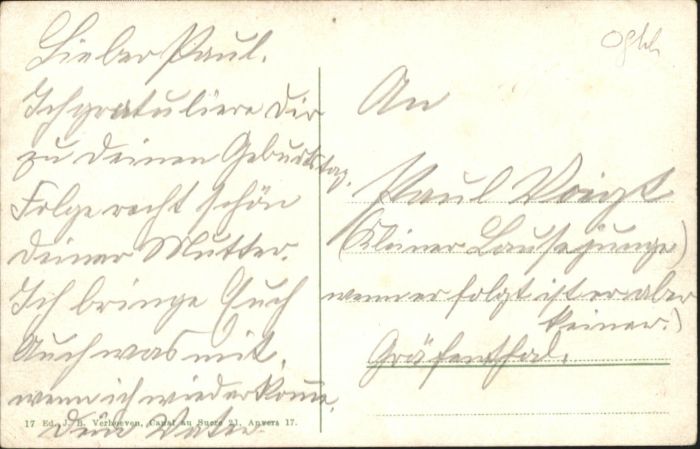 Lieber Paul.
Ich gratuliere Dir
zu deinen Geburtstag.
Folge recht schön
deiner Mutter.
Ich bringe Euch
Auch was mit,
wenn ich wiederkomme.
Dein Vater
17 Ed. J. B. Verhoeven, Canal au Sucre 21, Anvers 17.
An
Paul Voigt
(Kleiner Lausejunge)
wenn er folgt ist er aber
keiner.)
Gräfenthal.